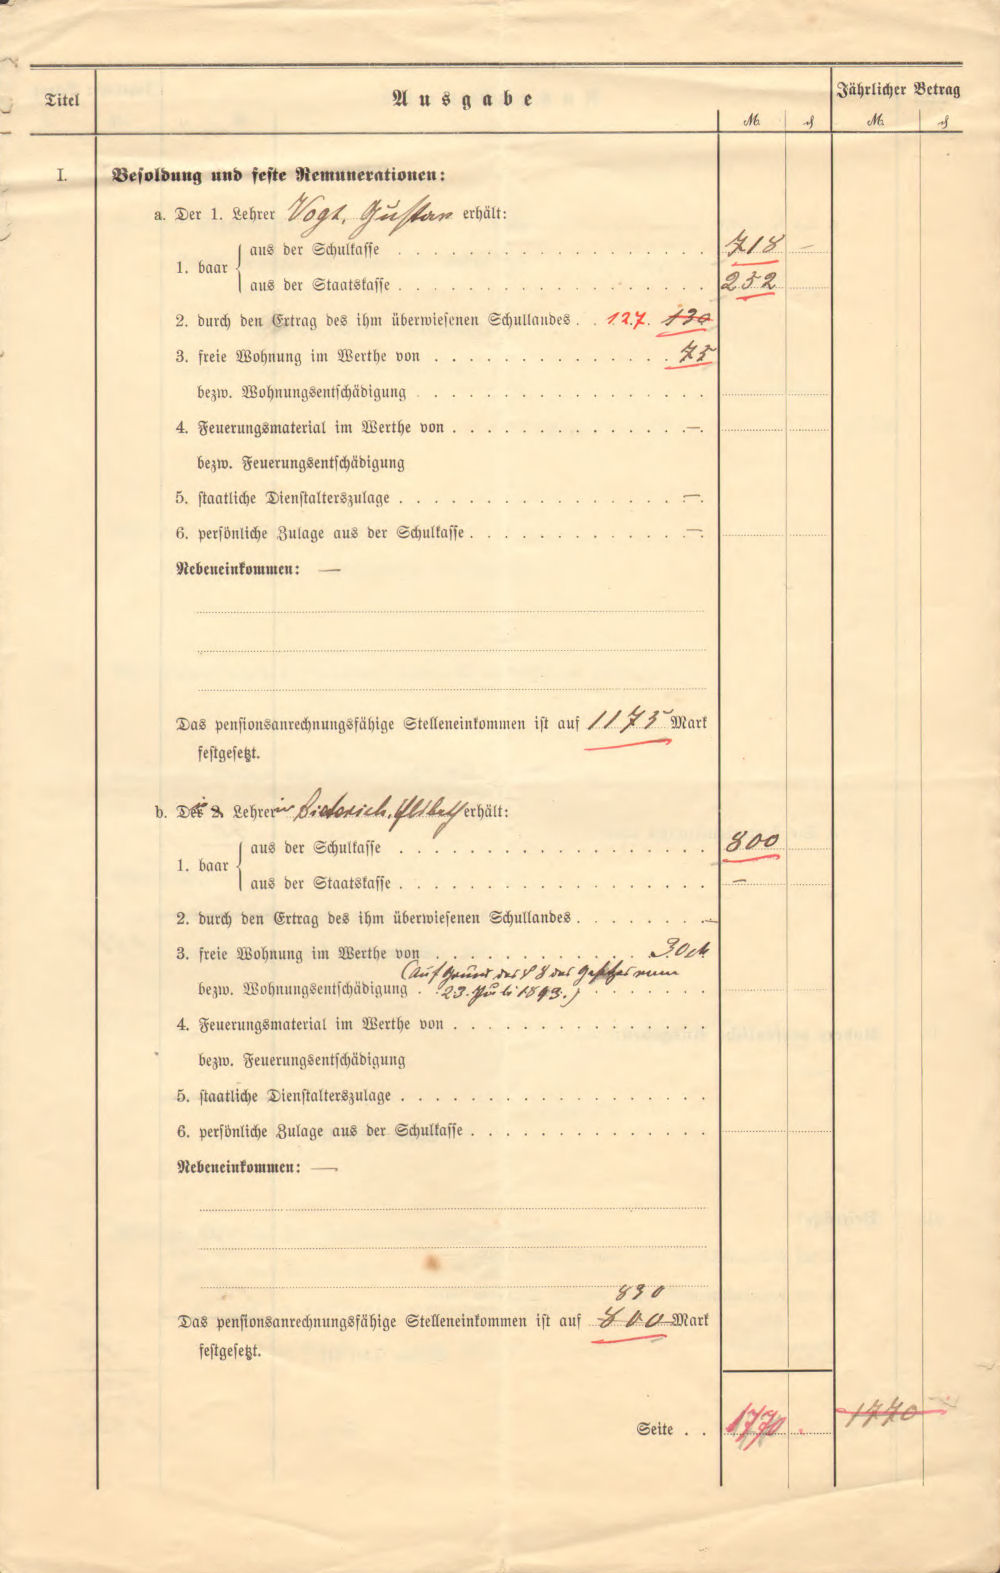 Titel Ausgabe Jährlicher Betrag
M. ₰ M. ₰
I. Besoldung und feste Remunerationen:
a. Der 1. Lehrer Vogt, Gustav erhält:
1. baar { aus der Schulkasse . . . . 718 —
aus der Staatskasse . . . . 252
2. durch den Ertrag des ihm überwiesenen Schullandes . . 127. 130
3. freie Wohnung im Werthe von . . . . 75
bezw. Wohnungsentschädigung . . . .
4. Feuerungsmaterial im Werthe von . . . . —
bezw. Feuerungsentschädigung
5. staatliche Dienstalterszulage . . . . —
6. persönliche Zulage aus der Schulkasse . . . . —
Nebeneinkommen: —
Das pensionsanrechnungsfähige Stelleneinkommen ist auf 1175 Mark
festgesetzt.
b. Die 2. Lehrerin Dieterich, Elsbeth erhält:
1. baar { aus der Schulkasse . . . . 800
aus der Staatskasse . . . . —
2. durch den Ertrag des ihm überwiesenen Schullandes . . . . —
3. freie Wohnung im Werthe von . . . . 30 M
(auf Grund des § 8 des Gesetzes vom
bezw. Wohnungsentschädigung . 23. Juli 1893.) . . . .
4. Feuerungsmaterial im Werthe von . . . .
bezw. Feuerungsentschädigung
5. staatliche Dienstalterszulage . . . .
6. persönliche Zulage aus der Schulkasse . . . .
Nebeneinkommen: —
830
Das pensionsanrechnungsfähige Stelleneinkommen ist auf 800 Mark
festgesetzt.
Seite . . 1770 . 1770